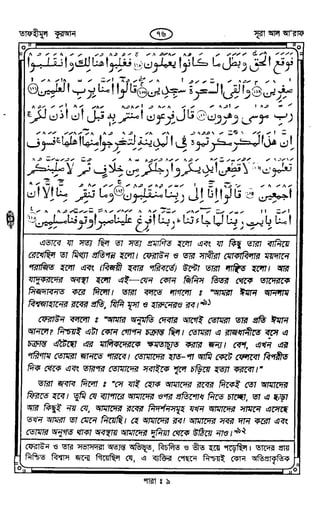 তাফহীমুল কুরআন ৭৬ সূরা আল আ'রাফ
فوقع الحق وبطل ما كانوا يعملون ۝ فغلبوا هنالك وانقلبوا
صغرين ۝ والقى السحرة سجدين ۝ قالوا امنا برب العلمين ۝
رب موسى وهرون ۝ قال فرعون امنتم به قبل ان اذن لكم
ان هذا لمكر مكرتموه فى المدينة لتخرجوا منها اهلها فسوف
تعلمون ۝ لاقطعن ايديكم وارجلكم من خلاف ثم لاصلبنكم
اجمعين ۝ قالوا انا الى ربنا منقلبون ۝ وما تنقم منا الا ان
امنا بايت ربنا لما جاءتنا ربنا افرغ علينا صبرا وتوفنا مسلمين ۝
এভাবে যা সত্য ছিল তা সত্য প্রমাণিত হলো এবং যা কিছু তারা বানিয়ে
রেখেছিল তা মিথ্যা প্রতিপন্ন হলো। ফেরাউন ও তার সাথীরা মোকাবিলার ময়দানে
পরাজিত হলো এবং (বিজয়ী হবার পরিবর্তে) উল্টো তারা লাঞ্ছিত হলো। আর
যাদুকরদের অবস্থা হলো এই—যেন কোন জিনিস ভিতর থেকে তাদেরকে
সিজদাবনত করে দিলো। তারা বলতে লাগলো : "আমরা ঈমান আনলাম
বিশ্বজাহানের রবের প্রতি, যিনি মূসা ও হারুনেরও রব।"
ফেরাউন বললো : "আমার অনুমতি দেবার আগেই তোমরা তার প্রতি ঈমান
আনলে? নিশ্চয়ই এটা কোন গোপন চক্রান্ত ছিল। তোমরা এ রাজধানীতে বসে এ
চক্রান্ত এঁটেছো এর মালিকদেরকে ক্ষমতাচ্যুত করার জন্য। বেশ, এখন এর
পরিণাম তোমরা জানতে পারবে। তোমাদের হাত-পা আমি কেটে ফেলবো বিপরীত
দিক থেকে এবং তারপর তোমাদের সবাইকে শূলে চড়িয়ে হত্যা করবো।"
তারা জবাব দিলো : "সে যাই হোক আমাদের রবের দিকেই তো আমাদের
ফিরতে হবে। তুমি যে ব্যাপারে আমাদের ওপর প্রতিশোধ নিতে চাচ্ছো, তা এ ছাড়া
আর কিছুই নয় যে, আমাদের রবের নিদর্শনসমূহ যখন আমাদের সামনে এসেছে
তখন আমরা তা মেনে নিয়েছি। হে আমাদের রব! আমাদের সবর দান করো এবং
তোমার অনুগত থাকা অবস্থায় আমাদের দুনিয়া থেকে উঠিয়ে নাও।"
ফেরাউন ও তার সভাসদরা
নিশ্চিত বিশ্বাস জন্মে গিয়েছিল যে, এ ব্যক্তির পেছনে নিশ্চয়ই কোন অতিপ্রাকৃতিক
পারা : ৯